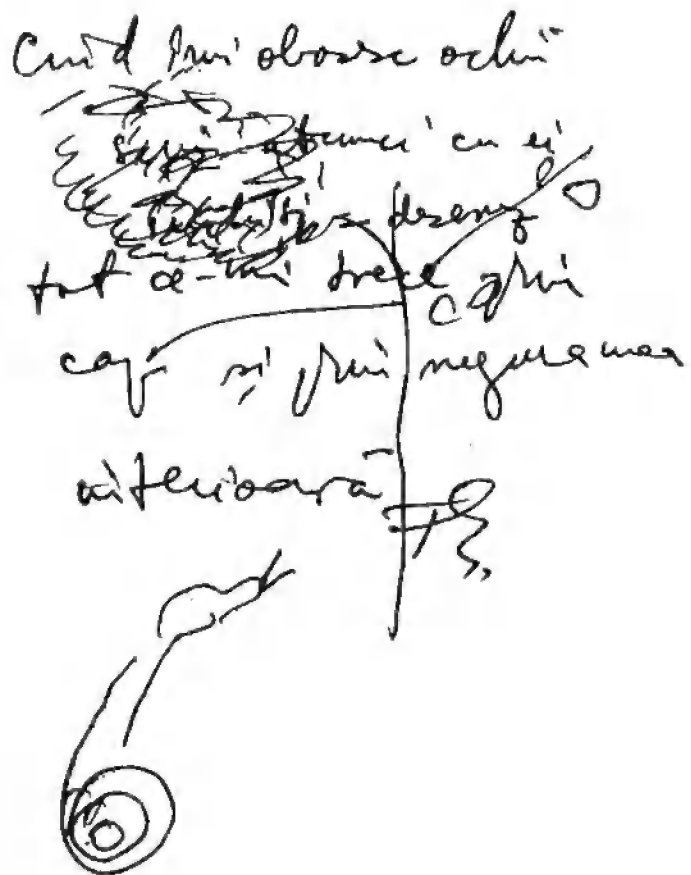 Cînd îmi obosesc ochii
atunci cu ei
desenez
tot ce-mi trece prin
cap și prin negura mea
interioară